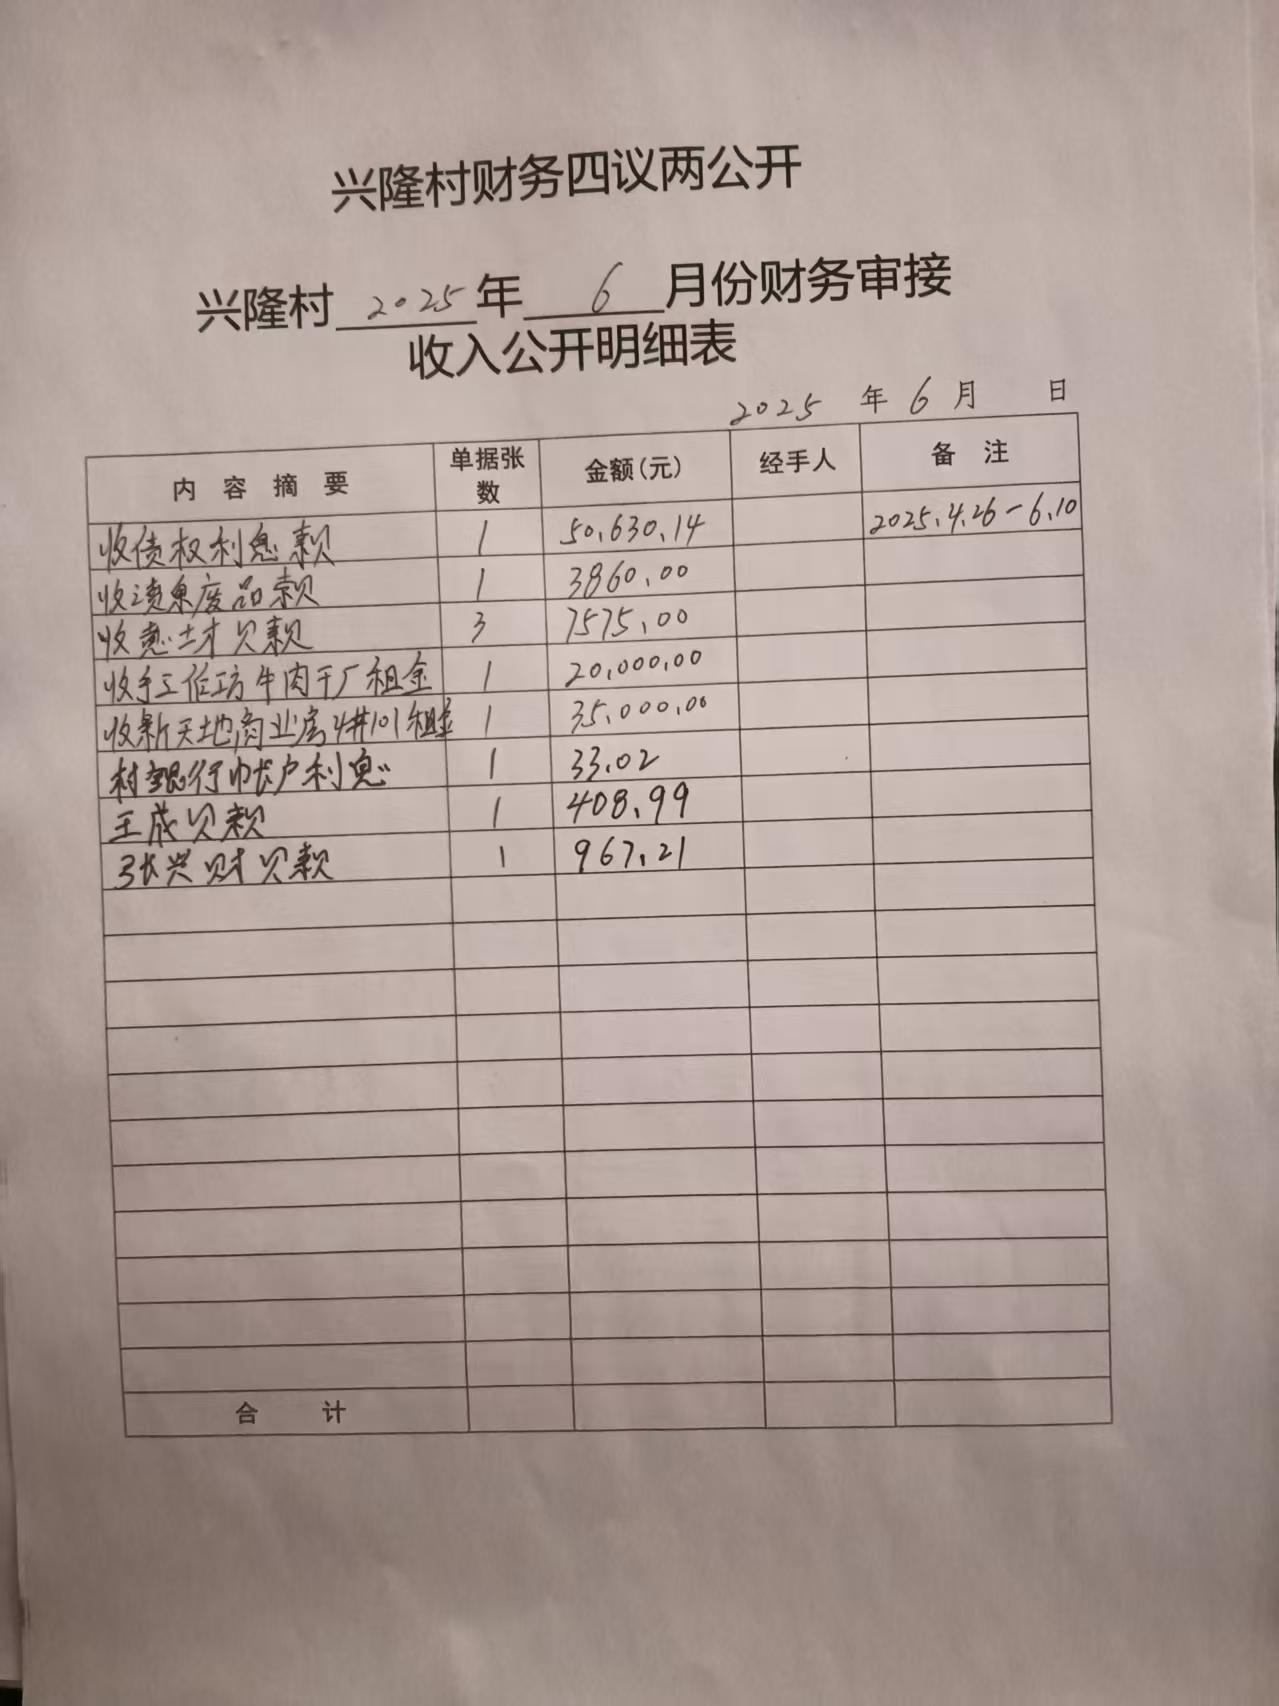 兴隆村财务四议两公开
兴隆村 2025 年 6 月份财务审接
收入公开明细表
2025 年 6 月 日
内容摘要 单据张数 金额(元) 经手人 备注
收债权利息款 1 50,630.14 2025.4.26-6.10
收渍泉废品款 1 3860.00
收 款 3 7575.00
收手工作坊牛肉干厂租金 1 20,000.00
收新天地商业房4#101租金 1 35,000.00
村银行帐户利息 1 33.02
王成贝款 1 408.99
张兴财贝款 1 967.21
合计